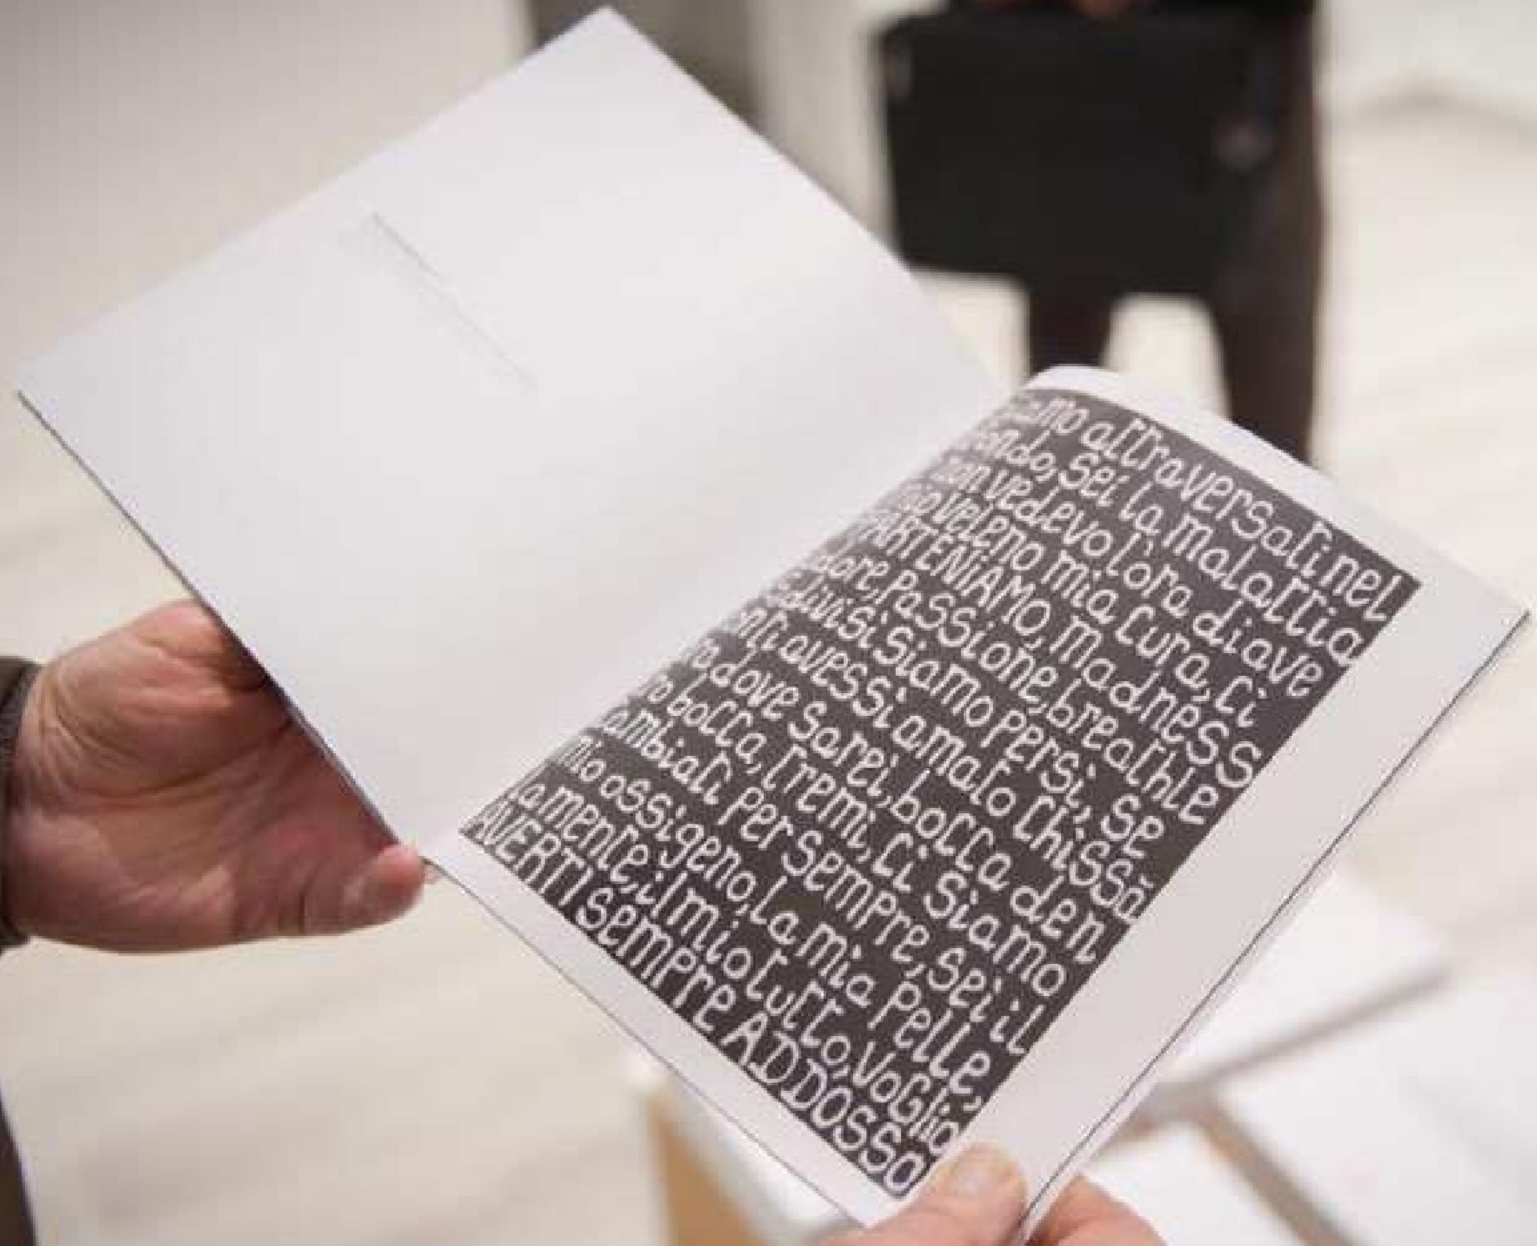 attraversati nel
sei la malattia
non vedevo l'ora di ave
veleno mia cura, ci
madness
passione, breathle
divisi siamo persi, se
ti avessi amato chissà
dove sarei, bocca den
bocca, tremi, ci siamo
cambiati per sempre, sei il
mio ossigeno, la mia pelle,
la mente, il mio tutto, voGlio
AVERTI sempre ADDOSSO